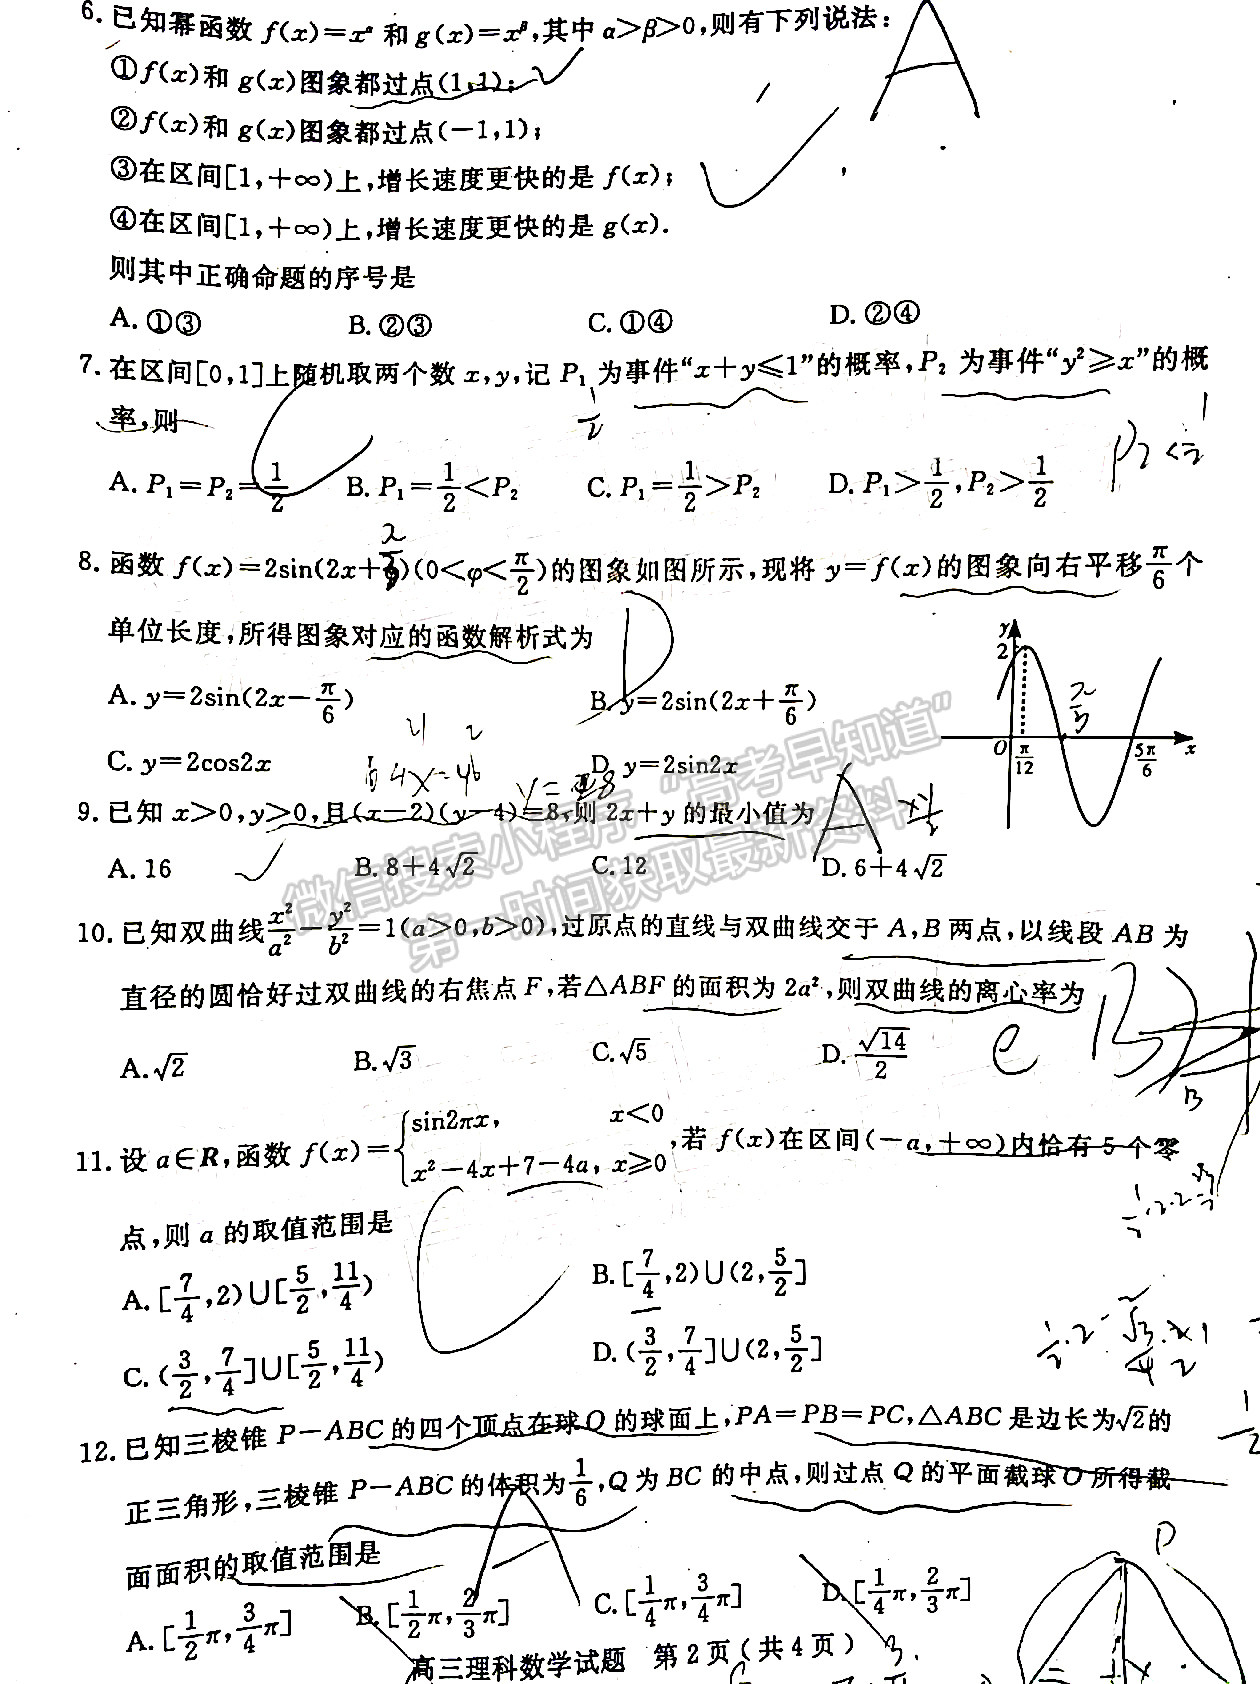 6. 已知幂函数 f(x)=x^α 和 g(x)=x^β,其中 α>β>0,则有下列说法:
①f(x)和 g(x)图象都过点(1,1);
②f(x)和 g(x)图象都过点(-1,1);
③在区间[1,+∞)上,增长速度更快的是 f(x);
④在区间[1,+∞)上,增长速度更快的是 g(x).
则其中正确命题的序号是
A. ①③ B. ②③ C. ①④ D. ②④
A
7. 在区间[0,1]上随机取两个数 x,y,记 P₁ 为事件“x+y≤1”的概率,P₂ 为事件“y²≥x”的概
率,则
1/2
P₂<1/2
C
A. P₁=P₂=1/2 B. P₁=1/2<P₂ C. P₁=1/2>P₂ D. P₁>1/2,P₂>1/2
8. 函数 f(x)=2sin(2x+φ)(0<φ<π/2)的图象如图所示,现将 y=f(x)的图象向右平移π/6个
单位长度,所得图象对应的函数解析式为
D
A. y=2sin(2x-π/6) B. y=2sin(2x+π/6)
C. y=2cos2x D. y=2sin2x
y
2
O π/12 5π/6 x
9. 已知 x>0,y>0,且(x-2)(y-4)=8,则 2x+y 的最小值为
A
A. 16 B. 8+4√2 C. 12 D. 6+4√2
微信搜索小程序“高考早知道”
第一时间获取最新资料
10. 已知双曲线x²/a²-y²/b²=1(a>0,b>0),过原点的直线与双曲线交于 A,B 两点,以线段 AB 为
直径的圆恰好过双曲线的右焦点 F,若△ABF 的面积为 2a²,则双曲线的离心率为
A. √2 B. √3 C. √5 D. √14/2
e B
B
11. 设 a∈R,函数 f(x)={sin2πx, x<0
x²-4x+7-4a, x≥0,若 f(x)在区间(-a,+∞)内恰有 5 个零
点,则 a 的取值范围是
C
A. [7/4,2)∪[5/2,11/4) B. [7/4,2)∪(2,5/2]
C. (3/2,7/4]∪[5/2,11/4) D. (3/2,7/4]∪(2,5/2]
12. 已知三棱锥 P-ABC 的四个顶点在球 O 的球面上,PA=PB=PC,△ABC 是边长为√2的
正三角形,三棱锥 P-ABC 的体积为1/6,Q 为 BC 的中点,则过点 Q 的平面截球 O 所得截
面面积的取值范围是
A
A. [1/2π,3/4π] B. [1/2π,2/3π] C. [1/4π,3/4π] D. [1/4π,2/3π]
P
高三理科数学试题 第 2 页(共 4 页)